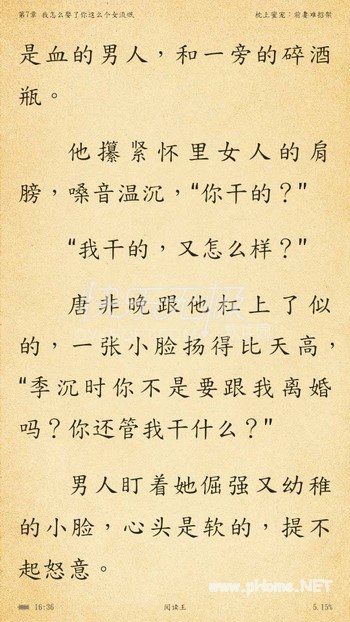 第7章 我怎么娶了你这么个女流氓
枕上蜜宠：前妻难招架
是血的男人，和一旁的碎酒
瓶。
他攥紧怀里女人的肩
膀，嗓音温沉，“你干的？”
“我干的，又怎么样？”
唐非晚跟他杠上了似
的，一张小脸扬得比天高，
“季沉时你不是要跟我离婚
吗？你还管我干什么？”
男人盯着她倔强又幼稚
的小脸，心头是软的，提不
起怒意。
www.pHome.NET
16:36
阅读王
5.15%